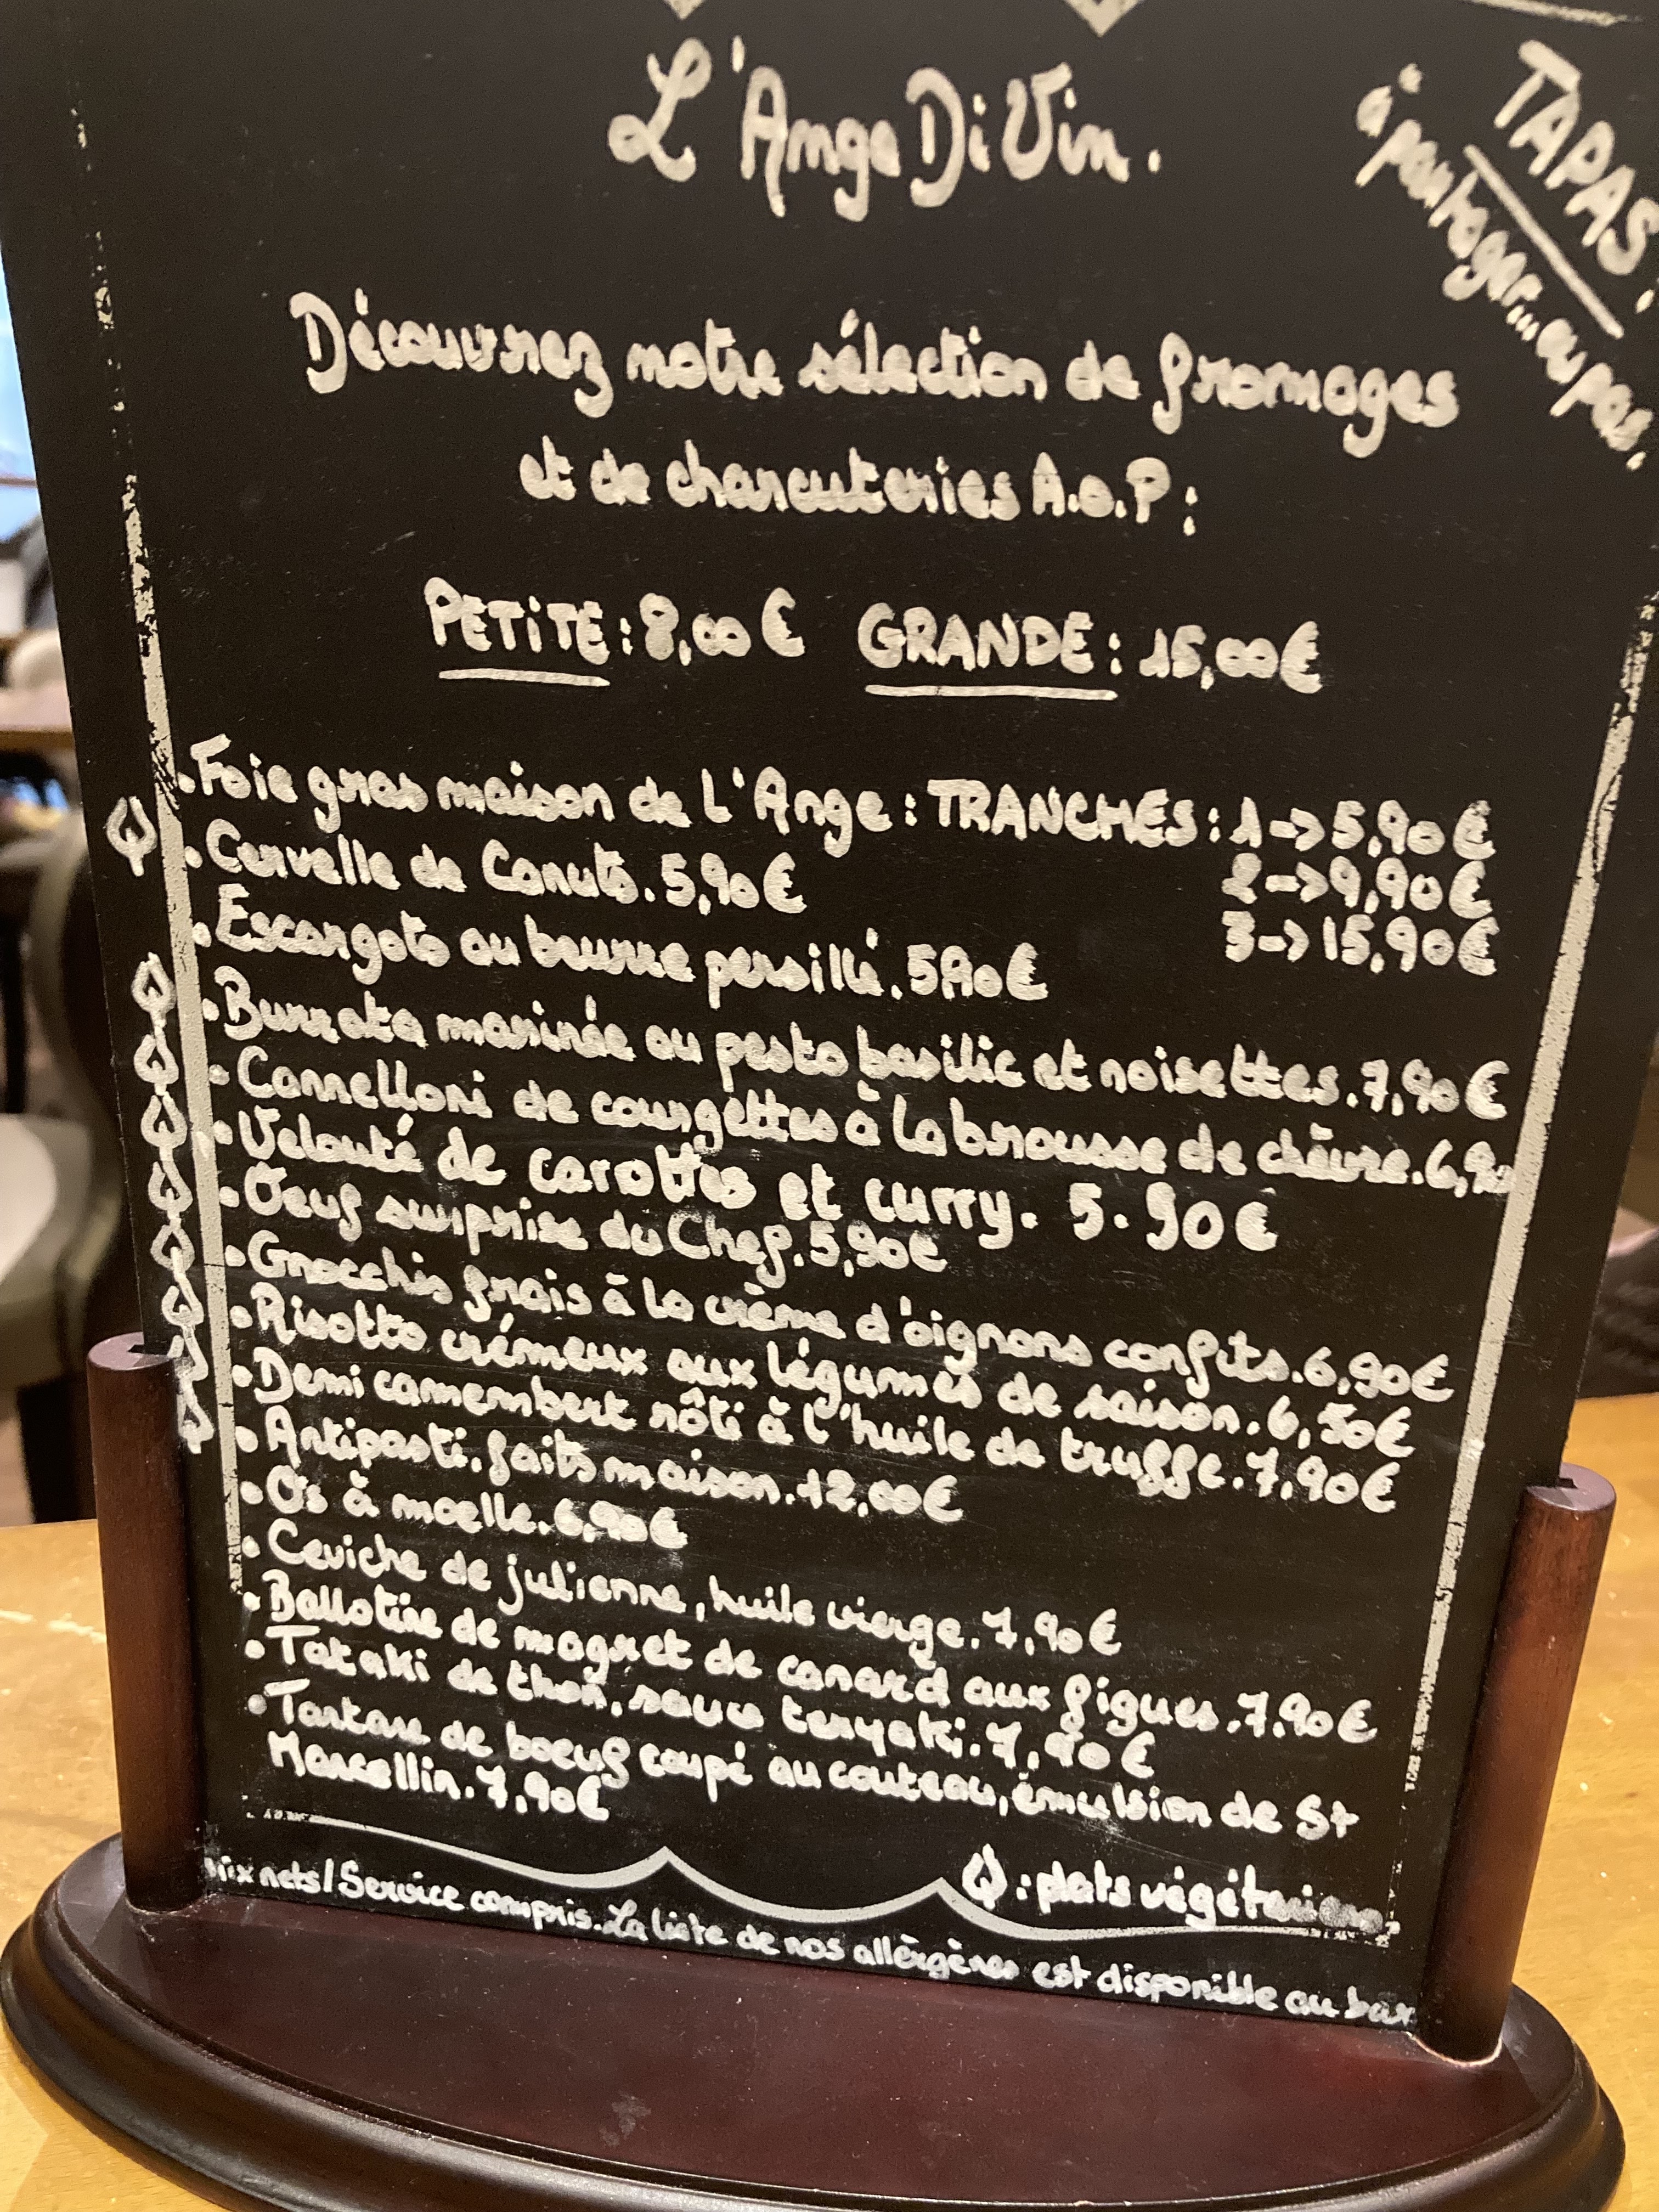 L'Ange Di Vin.
TAPAS
"à partager... ou pas.
Découvrez notre sélection de fromages
et de charcuteries A.O.P :
PETITE : 8,00 € GRANDE : 15,00 €
. Foie gras maison de l'Ange : TRANCHES : 1 -> 5,90 €
2 -> 9,90 €
3 -> 15,90 €
. Cervelle de Canuts. 5,90 €
. Escargots au beurre persillé. 5,90 €
. Burrata marinée au pesto basilic et noisettes. 7,90 €
. Cannelloni de courgettes à la brousse de chèvre. 6,90
. Velouté de carottes et curry. 5.90 €
. Oeuf surprise du Chef. 5,90 €
. Gnocchis frais à la crème d'oignons confits. 6,90 €
. Risotto crémeux aux légumes de saison. 6,50 €
. Demi camembert rôti à l'huile de truffe. 7,90 €
. Antipasti, faits maison. 12,00 €
. Os à moelle. 6,90 €
. Ceviche de julienne, huile vierge. 7,90 €
. Ballotine de magret de canard aux figues. 7.90 €
. Tataki de thon, sauce teryaki. 7,90 €
. Tartare de boeuf coupé au couteau, émulsion de St
Marcellin. 7,90 €
: plats végétariens.
rix nets / Service compris. La liste de nos allèrgènes est disponible au bar